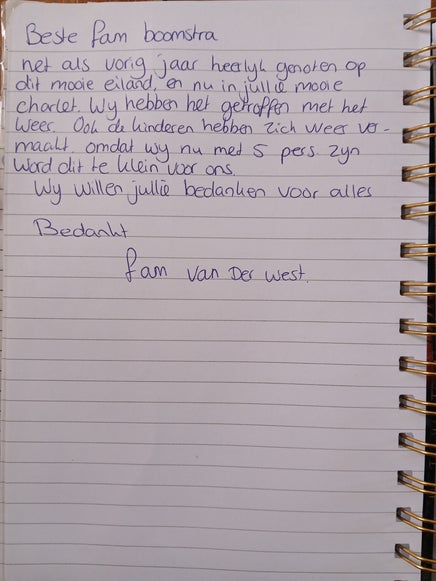 Beste fam boomstra
net als vorig jaar heerlyk genoten op
dit mooie eiland, en nu in jullie mooie
charlet. Wy hebben het getroffen met het
weer. Ook de kinderen hebben zich weer ver-
maakt. omdat wy nu met 5 pers. zyn
word dit te klein voor ons.
Wy willen jullie bedanken voor alles
Bedankt
fam van Der west.